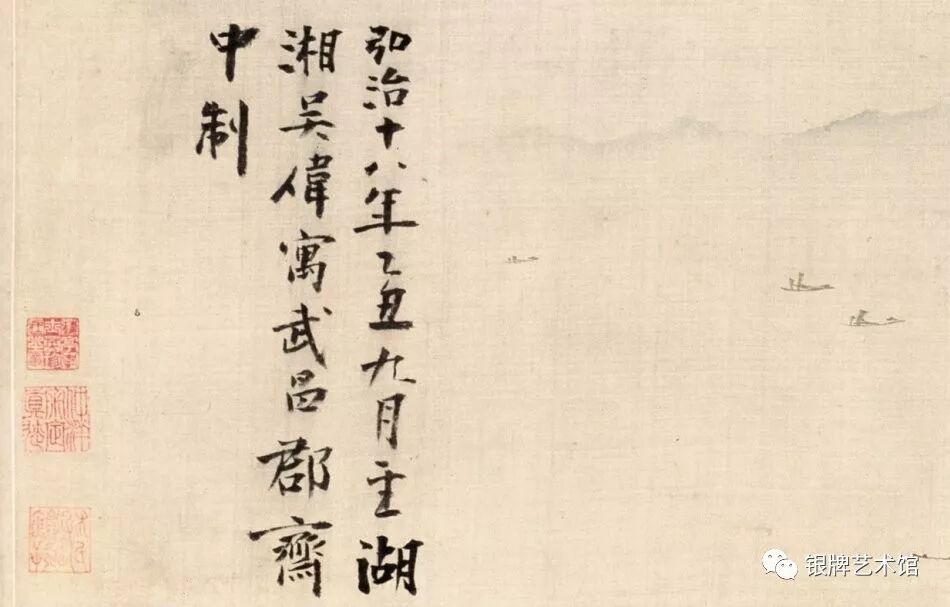 弘治十八年乙丑九月至湖
湘吴偉寓武昌郡齋
中制
银牌艺术馆